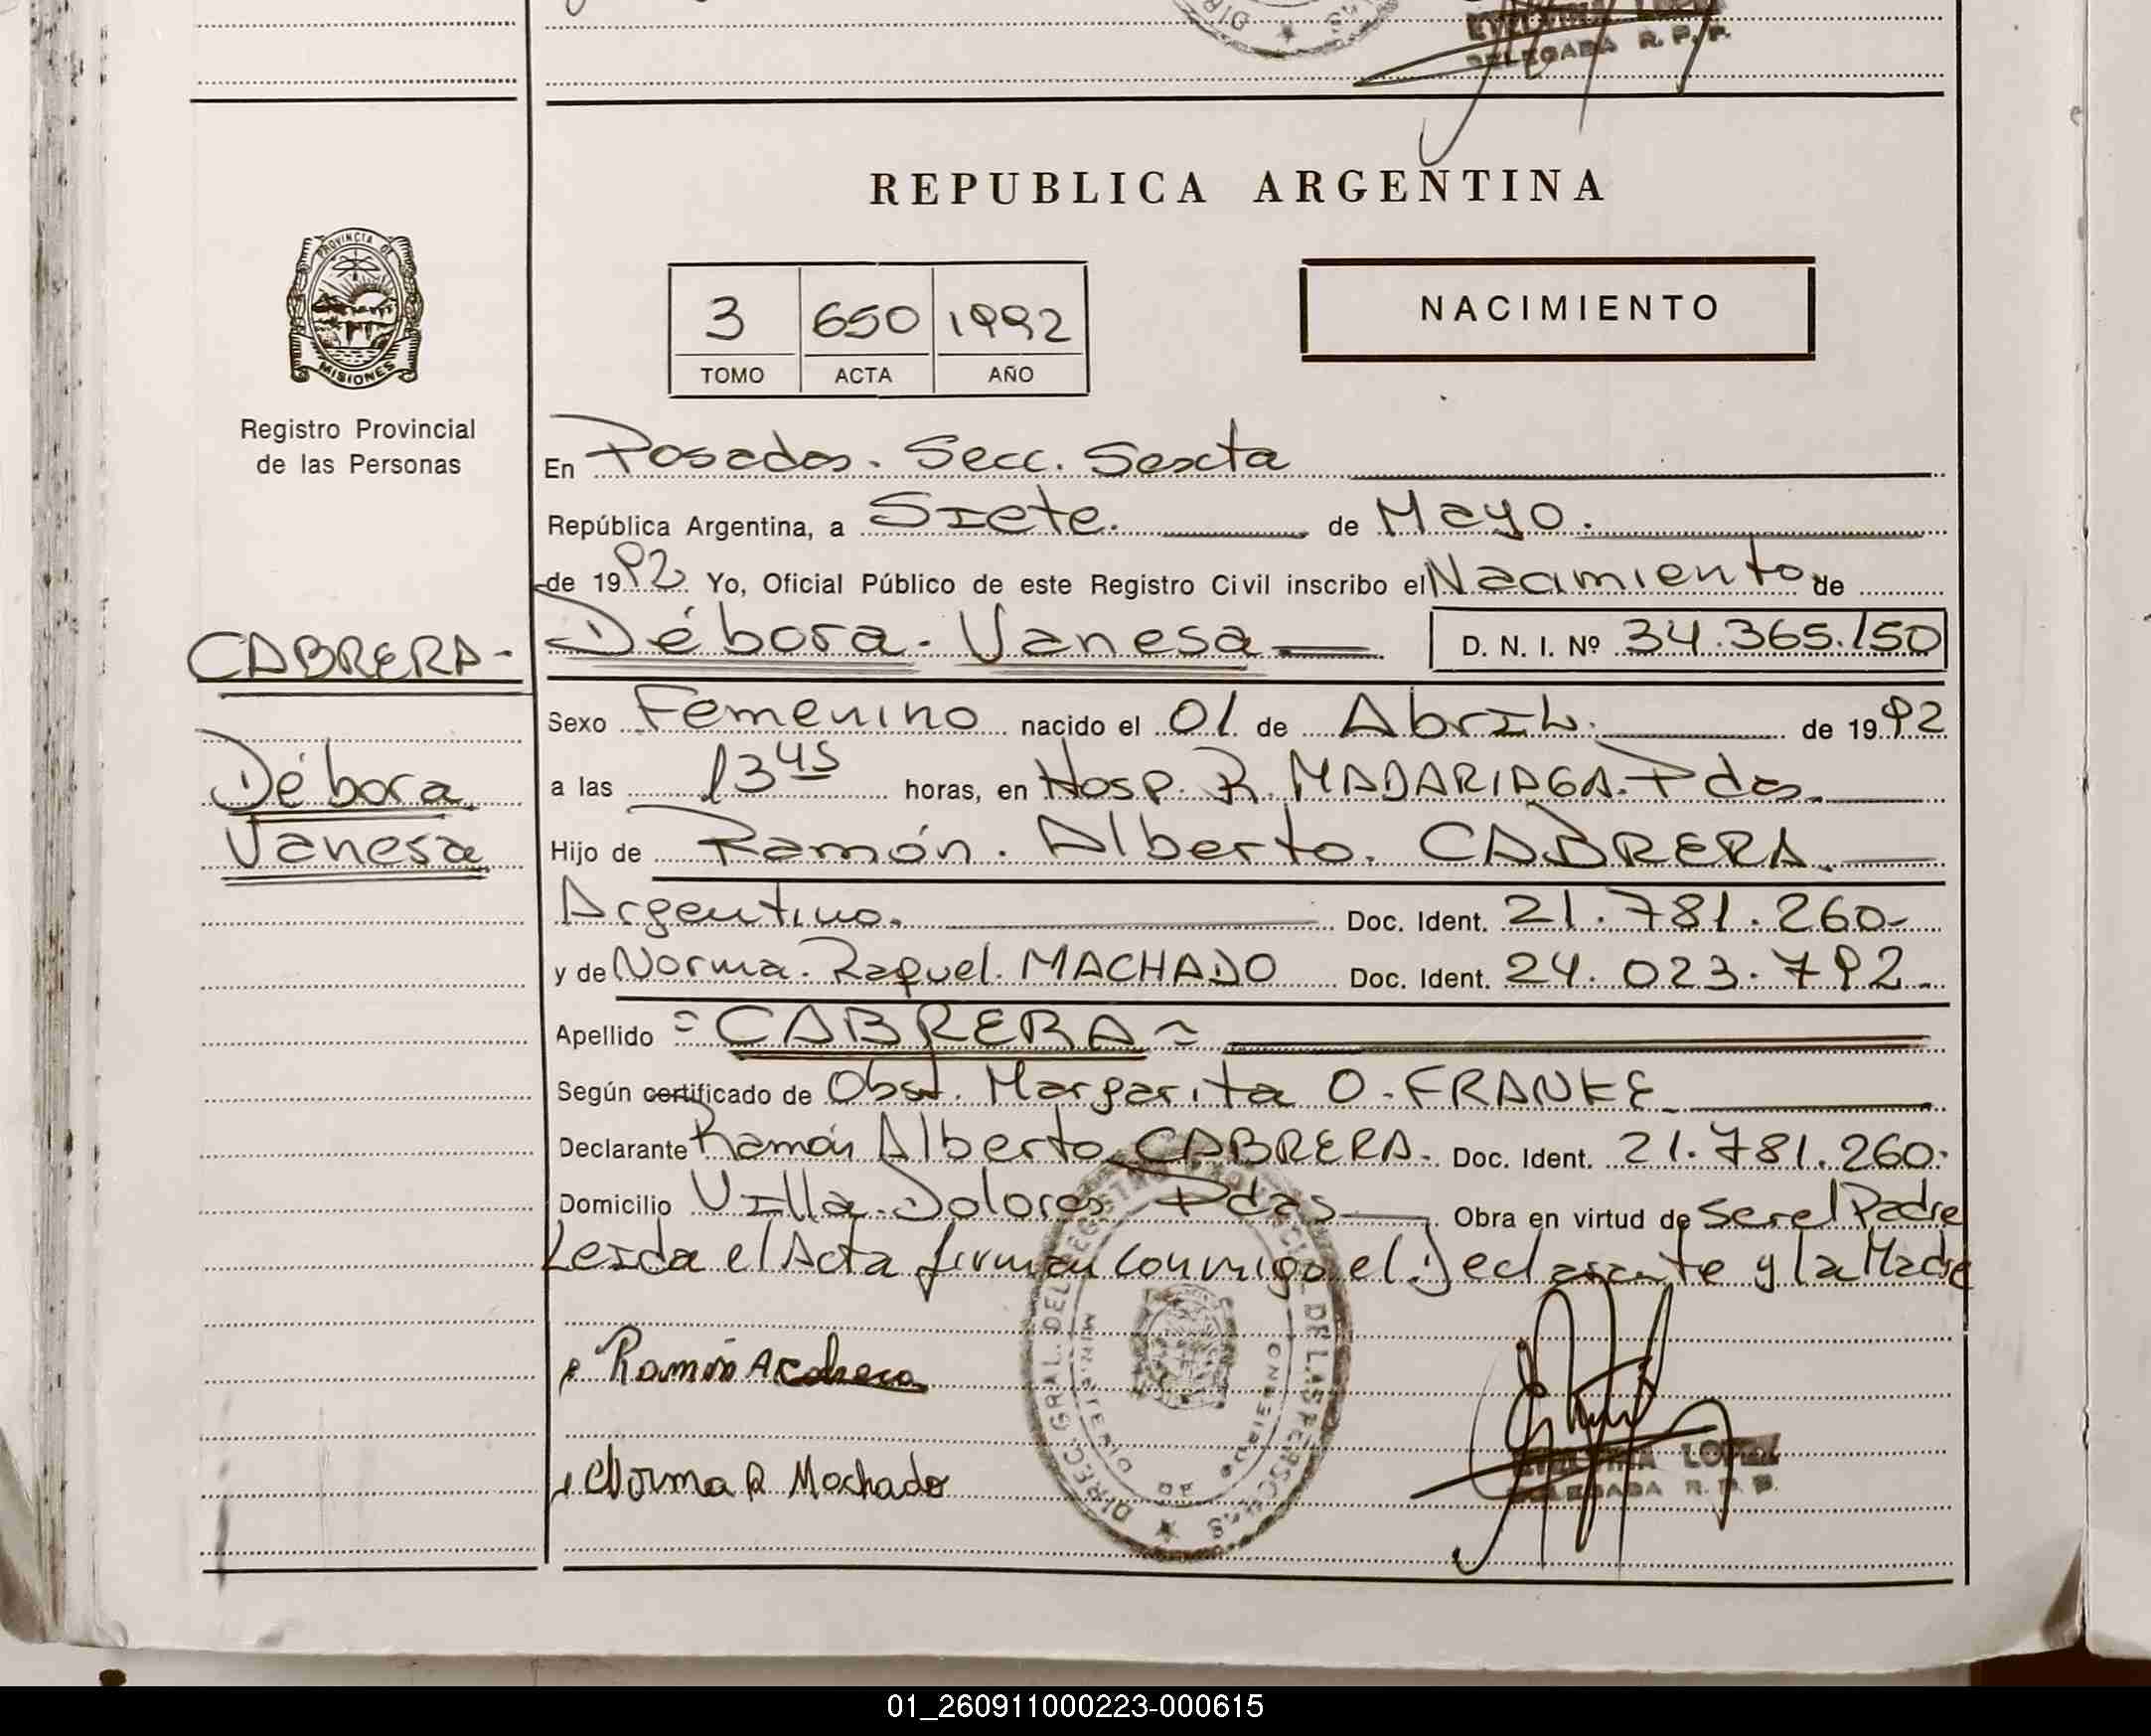 DELEGADA R. P. P.
REPUBLICA ARGENTINA
PROVINCIA DE
MISIONES
Registro Provincial
de las Personas
3 650 1992
TOMO ACTA AÑO
NACIMIENTO
En Posadas. Secc. Sexta
República Argentina, a Siete. de Mayo.
de 1992 Yo, Oficial Público de este Registro Civil inscribo el Nacimiento de
CABRERA-
Débora
Vanesa
Débora. Vanesa D. N. I. Nº 34.365.150
Sexo Femenino nacido el 01 de Abril. de 1992
a las 13 45 horas, en Hosp. R. MADARIAGA. Pdas.
Hijo de Ramón. Alberto. CABRERA.
Argentino. Doc. Ident. 21.781.260-
y de Norma. Raquel. MACHADO Doc. Ident. 24.023.792.
Apellido = CABRERA =
Según certificado de Obst. Margarita O. FRANKE
Declarante Ramón Alberto CABRERA. Doc. Ident. 21.781.260.
Domicilio Villa. Dolores Pdas Obra en virtud de ser el Padre
Leida el Acta firman conmigo el Declarante y la Madre
Ramón A Cabrera
Norma R Machado
DIREC. GRAL. DEL REGISTRO PROVINCIAL DE LAS PERSONAS
MINISTERIO DE GOBIERNO
LOPEZ
DELEGADA R. P. P.
01_260911000223-000615